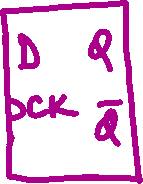 D Q
CK Q̅